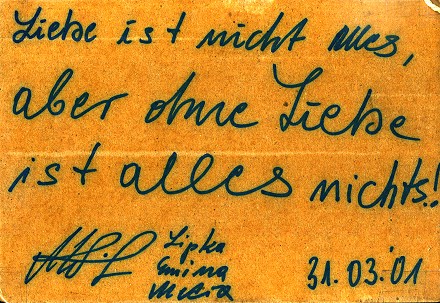 Liebe ist nicht alles,
aber ohne Liebe
ist alles nichts!!
Lipka
Emina
31.03.01